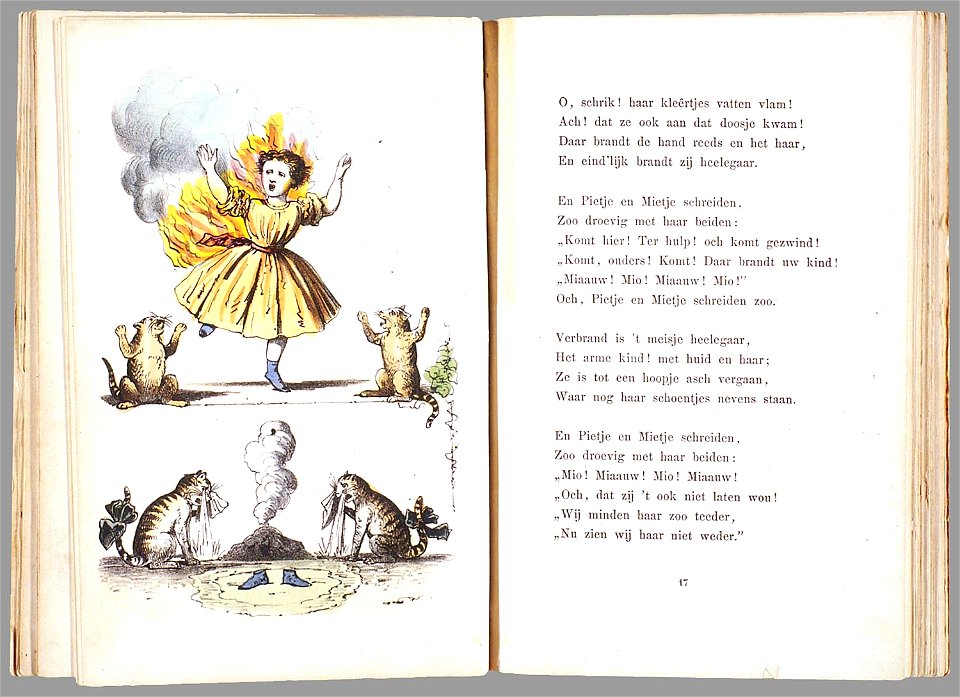 O, schrik! haar kleêrtjes vatten vlam!
Ach! dat ze ook aan dat doosje kwam!
Daar brandt de hand reeds en het haar,
En eind'lijk brandt zij heelegaar.
En Pietje en Mietje schreiden.
Zoo droevig met haar beiden:
„Komt hier! Ter hulp! och komt gezwind!
„Komt, ouders! Komt! Daar brandt uw kind!
„Miaauw! Mio! Miaauw! Mio!”
Och, Pietje en Mietje schreiden zoo.
Verbrand is 't meisje heelegaar,
Het arme kind! met huid en haar;
Ze is tot een hoopje asch vergaan,
Waar nog haar schoentjes nevens staan.
En Pietje en Mietje schreiden,
Zoo droevig met haar beiden:
„Mio! Miaauw! Mio! Miaauw!
„Och, dat zij 't ook niet laten wou!
„Wij minden haar zoo teeder,
„Nu zien wij haar niet weder.”
17